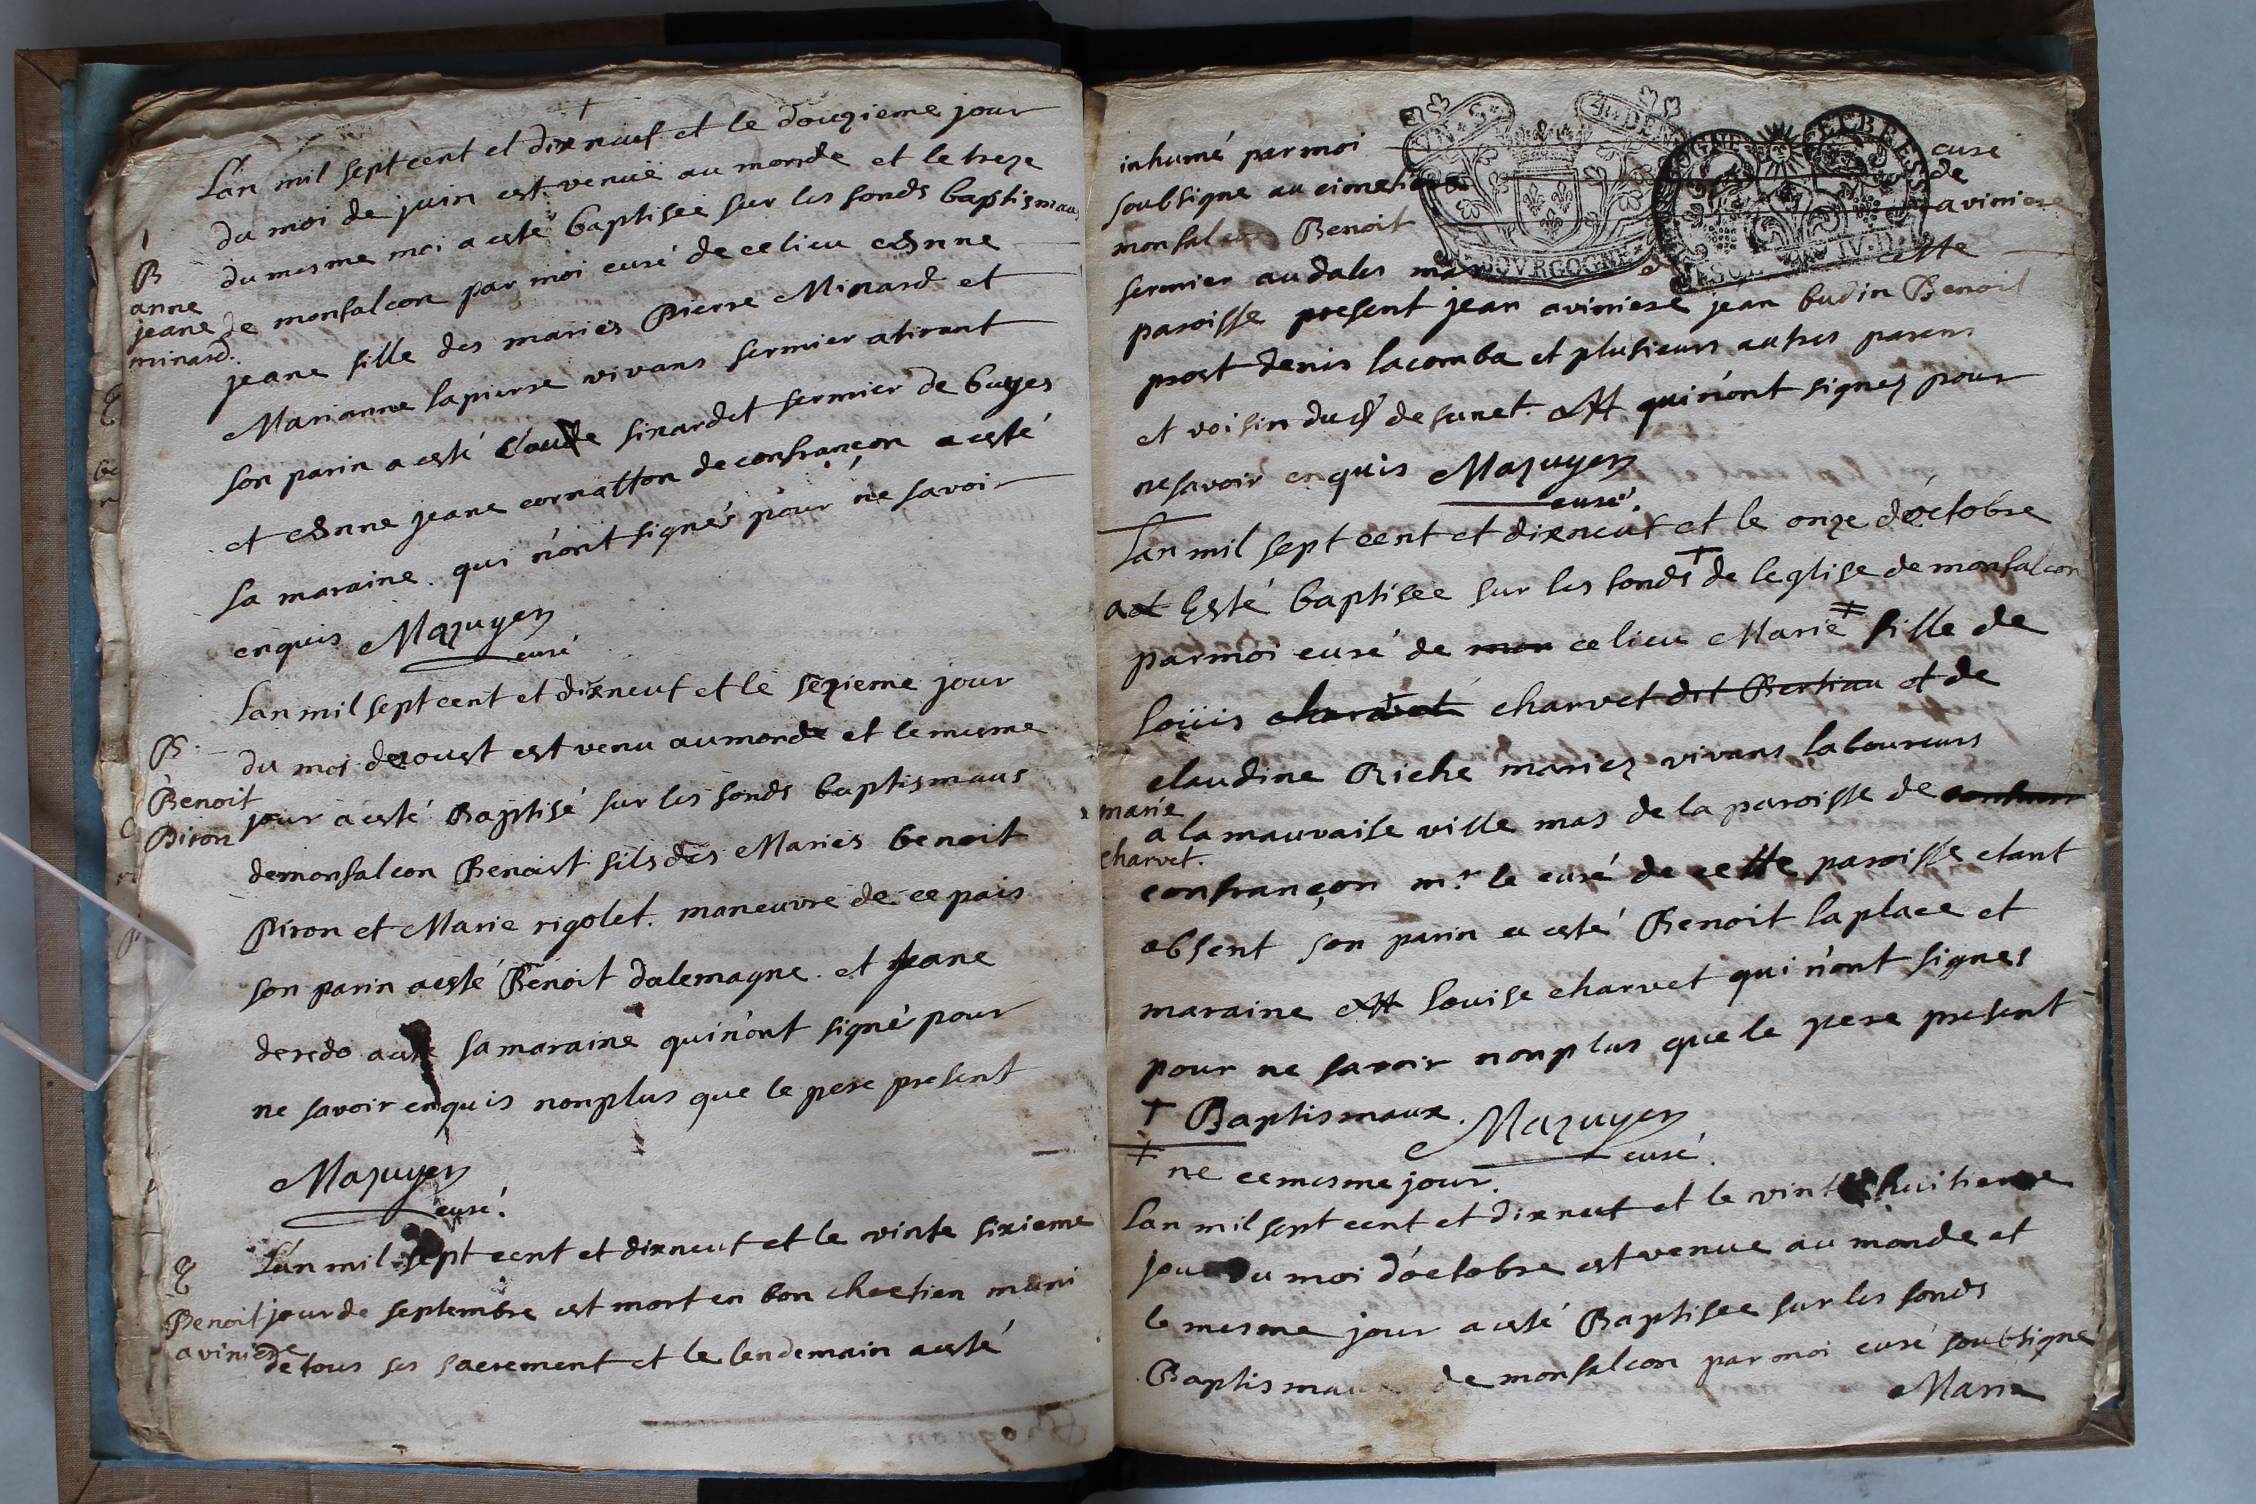 L'an mil sept cent et dixneuf et le douzieme jour
du moi de juin est venuë au monde et le treze
du mesme moi a esté baptisée sur les fonds baptismaux
B
anne
jeane
minard.
de monfalcon par moi curé de ce lieu Anne
jeane fille des mariés Pierre Minard et
Marianne lapierre vivans fermier atirant
son parin a esté Claude sirardet fermier de buges
et Anne jeane cornatton de confrançon a esté
sa maraine. qui n'ont signés pour ne savoir
enquis Mazuyer
curé
Lan mil sept cent et dixneuf et le sezieme jour
du moi deaoust est venu au monde et le mesme
B
Benoit
Piron
jour a esté Baptisé sur les fonds baptismaus
demonfalcon Benoist fils des Mariés benoit
Piron et Marie rigolet. maneuvre de ce païs
son parin a esté Benoit dalemagne. et jeane
deredo a esté sa maraine qui n'ont signé pour
ne savoir enquis nonplus que le pere present
Mazuyer
curé.
L'an mil sept cent et dixneuf et le vinte sixieme
Benoit
aviniere
jour de septembre est mort en bon chretien muni
de tous ses sacrement et le lendemain a esté
inhumé par moi curé
soubsigne au cimetiere de
monfalcon Benoit aviniere
fermier au dales mas cette
VN S
4 DEN
BOVRGOGNE
paroisse present jean aviniere jean budin Benoit
prost denis lacomba et plusieurs autres parens
et voisin dud defunet. qui n'ont signez pour
ne savoir enquis Mazuyer
curé.
Lan mil sept cent et dixneuf et le onze d'octobre
a esté baptisée sur les fonds + de leglise de monfalcon
parmoi curé de mon ce lieu Marie ǂ fille de
loüis charvet charvet dit Bertiau et de
claudine Riche mariez vivans laboureurs
marie
charvet.
a la mauvaise ville mas de la paroisse de
confrançon mr. le curé de cette paroisse etant
absent son parin a esté Benoit laplace et
maraine louise charvet qui n'ont signes
pour ne savoir nonplus que le pere present
+ Baptismaux. Mazuyer
curé.
ǂ ne ce mesme jour.
Lan mil sept cent et dixneuf et le vinte huitieme
jour du moi d'octobre est venue au monde et
le mesme jour a esté Baptisee sur les fonds
Baptismaux de monfalcon par moi curé soubsigné
Marie